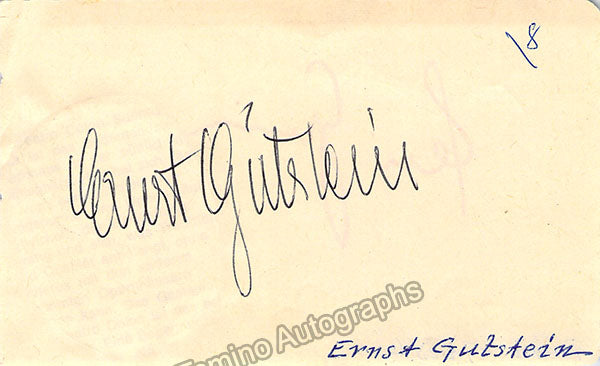 \8
Ernst Gutstein
Tamino Autographs
Ernst Gutstein